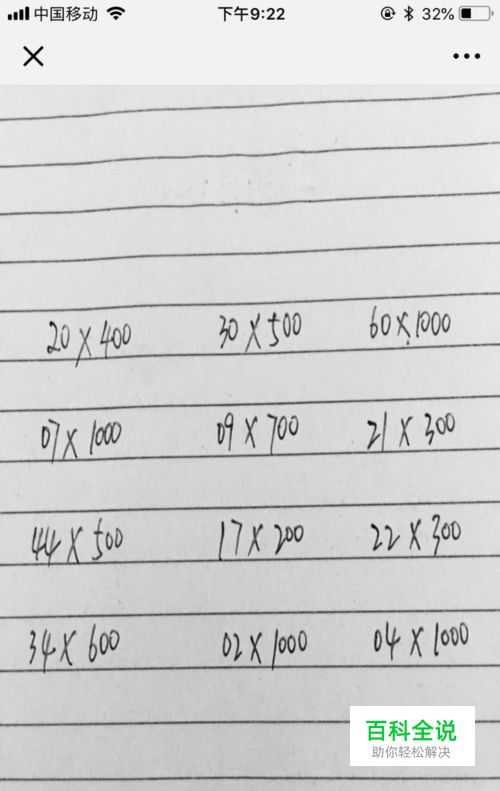 中国移动 下午9:22 32%
20X400 30X500 60X1000
07X1000 09X700 21X300
44X500 17X200 22X300
34X600 02X1000 04X1000
百科全说
助你轻松解决